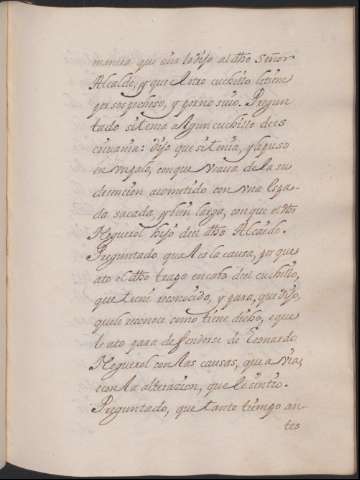 mencia que assi lo dijo al dho Señor
Alcalde, y que el otro cuchillo le tiene
por sospechoso, y por no suio. Pregun
tado si tenia algun cuchillo de es
criuania: dijo que si tenia, y le puso
en un palo, en que
detencion acometido con una
da sacada, y bien larga, con que el dho
Meguerol hijo del dho Alcaide.
Preguntado qual es la causa, por que
ato el dho trapo en cabo del cuchillo,
que tiene reconocido, y para, que dijo,
que le reconoce como tiene dicho, e que
le ato para defenderse de Leonardo
Meguerol con las causas, que auia,
e con la alteracion, que le sintio.
Preguntado, que tanto tiempo an
tes